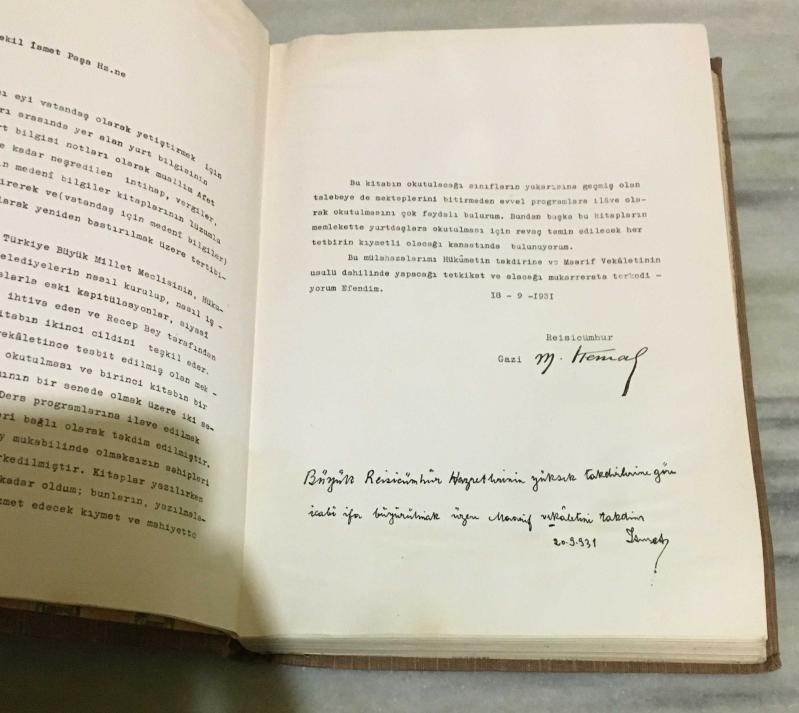 ekil İsmet Paşa Hz.ne
eyi vatandaş olarak yetiştirmek için
rı arasında yer alan yurt bilgisinin
rt bilgisi notları olarak muallim Afet
e kadar neşredilen intihap, vergiler,
in medenî bilgiler kitaplarının lüzumlu
irerek ve(vatandaş için medenî bilgiler)
larak yeniden bastırılmak üzere tertibi-
Türkiye Büyük Millet Meclisinin, Hüku-
elediyelerin nasıl kurulup, nasıl iş -
larla eski kapitülasyonlar, siyasî
ihtiva eden ve Recep Bey tarafından
itabın ikinci cildini teşkil eder.
ekâletince tesbit edilmiş olan mek -
okutulması ve birinci kitabın bir
ının bir senede olmak üzere iki se-
Ders programlarına ilave edilmek
eri bağlı olarak takdim edilmiştir.
y mukabilinde olmaksızın sahipleri
rkedilmiştir. Kitaplar yazılırken
kadar oldum; bunların, yazılmala-
zmet edecek kıymet ve mahiyette
Bu kitabın okutulacağı sınıfların yukarısına geçmiş olan
talebeye de mekteplerini bitirmeden evvel programlara ilâve ola-
rak okutulmasını çok faydalı bulurum. Bundan başka bu kitapların
memlekette yurtdaşlara okutulması için revaç temin edilecek her
tetbirin kıymetli olacağı kanaatında bulunuyorum.
Bu mülahazalarımı Hükûmetin takdirine ve Maarif Vekâletinin
usulü dahilinde yapacağı tetkikat ve alacağı mukarrerata terkedi -
yorum Efendim.
18 - 9 -1931
Reisicümhur
Gazi M. Kemal
Büyük Reisicümhür Hazretlerinin yüksek takdirlerine göre
icabı ifa buyurulmak üzere Maarif vekâletine takdim
20.9.931 İsmet